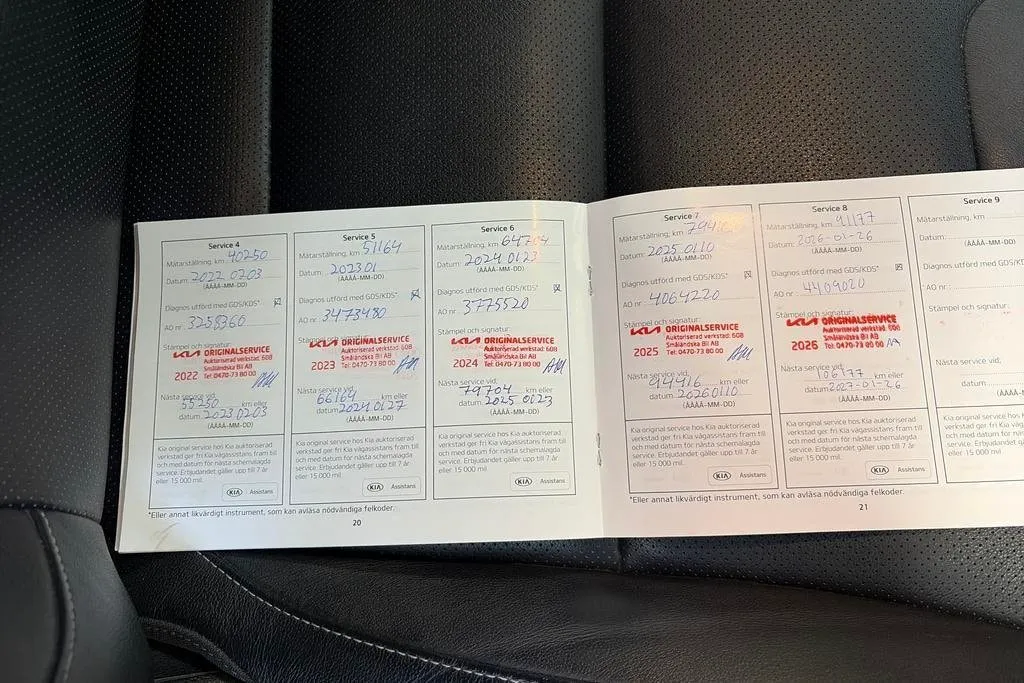 Service 4
Mätarställning, km 40250
Datum: 2022 0203
(ÅÅÅÅ-MM-DD)
Diagnos utförd med GDS/KDS*
AO nr
Stämpel och signatur:
KIA ORIGINALSERVICE
Auktoriserad verkstad: 608
Småländska Bil AB
2022 Tel: 0470-73 80 00
Nästa service vid:
55250 km eller
datum 2023 0203
(ÅÅÅÅ-MM-DD)
Kia original service hos Kia auktoriserad
verkstad ger fri Kia vägassistans fram till
och med datum för nästa schemalagda
service. Erbjudandet gäller upp till 7 år
eller 15 000 mil.
KIA Assistans
Service 5
Mätarställning, km 51164
Datum: 202301
(ÅÅÅÅ-MM-DD)
Diagnos utförd med GDS/KDS*
AO nr 3473480
Stämpel och signatur:
KIA ORIGINALSERVICE
Auktoriserad verkstad: 608
Småländska Bil AB
2023 Tel: 0470-73 80 00
Nästa service vid:
66164 km eller
datum 2024 0127
(ÅÅÅÅ-MM-DD)
Kia original service hos Kia auktoriserad
verkstad ger fri Kia vägassistans fram till
och med datum för nästa schemalagda
service. Erbjudandet gäller upp till 7 år
eller 15 000 mil.
KIA Assistans
Service 6
Mätarställning, km 64704
Datum: 2024 0123
(ÅÅÅÅ-MM-DD)
Diagnos utförd med GDS/KDS*
AO nr 3775520
Stämpel och signatur:
KIA ORIGINALSERVICE
Auktoriserad verkstad: 608
Småländska Bil AB
2024 Tel: 0470-73 80 00
Nästa service vid:
79704 km eller
datum 2025 0123
(ÅÅÅÅ-MM-DD)
Kia original service hos Kia auktoriserad
verkstad ger fri Kia vägassistans fram till
och med datum för nästa schemalagda
service. Erbjudandet gäller upp till 7 år
eller 15 000 mil.
KIA Assistans
*Eller annat likvärdigt instrument, som kan avläsa nödvändiga felkoder.
20
Service 7
Mätarställning, km
Datum: 2025 0110
(ÅÅÅÅ-MM-DD)
Diagnos utförd med GDS/KDS*
AO nr 4064220
Stämpel och signatur:
KIA ORIGINALSERVICE
Auktoriserad verkstad: 608
Småländska Bil AB
2025 Tel: 0470-73 80 00
Nästa service vid:
94416 km eller
datum 20260110
(ÅÅÅÅ-MM-DD)
Kia original service hos Kia auktoriserad
verkstad ger fri Kia vägassistans fram till
och med datum för nästa schemalagda
service. Erbjudandet gäller upp till 7 år
eller 15 000 mil.
KIA Assistans
Service 8
Mätarställning, km 91177
Datum: 2026-01-26
(ÅÅÅÅ-MM-DD)
Diagnos utförd med GDS/KDS*
AO nr 4409020
Stämpel och signatur:
KIA ORIGINALSERVICE
Auktoriserad verkstad: 608
Småländska Bil AB
2026 Tel: 0470-73 80 00
Nästa service vid:
106177 km eller
datum 2027-01-26
(ÅÅÅÅ-MM-DD)
Kia original service hos Kia auktoriserad
verkstad ger fri Kia vägassistans fram till
och med datum för nästa schemalagda
service. Erbjudandet gäller upp till 7 år
eller 15 000 mil.
KIA Assistans
Service 9
Mätarställning, km
Datum:
(ÅÅÅÅ-MM-DD)
Diagnos utförd med GDS/KD
AO nr
Stämpel och signatur:
Nästa service vid:
km
datum
(ÅÅÅÅ-MM-DD)
Kia original service hos Kia
verkstad ger fri Kia vägassi
och med datum för nästa
service. Erbjudandet gälle
eller 15 000 mil.
*Eller annat likvärdigt instrument, som kan avläsa nödvändiga felkoder.
21